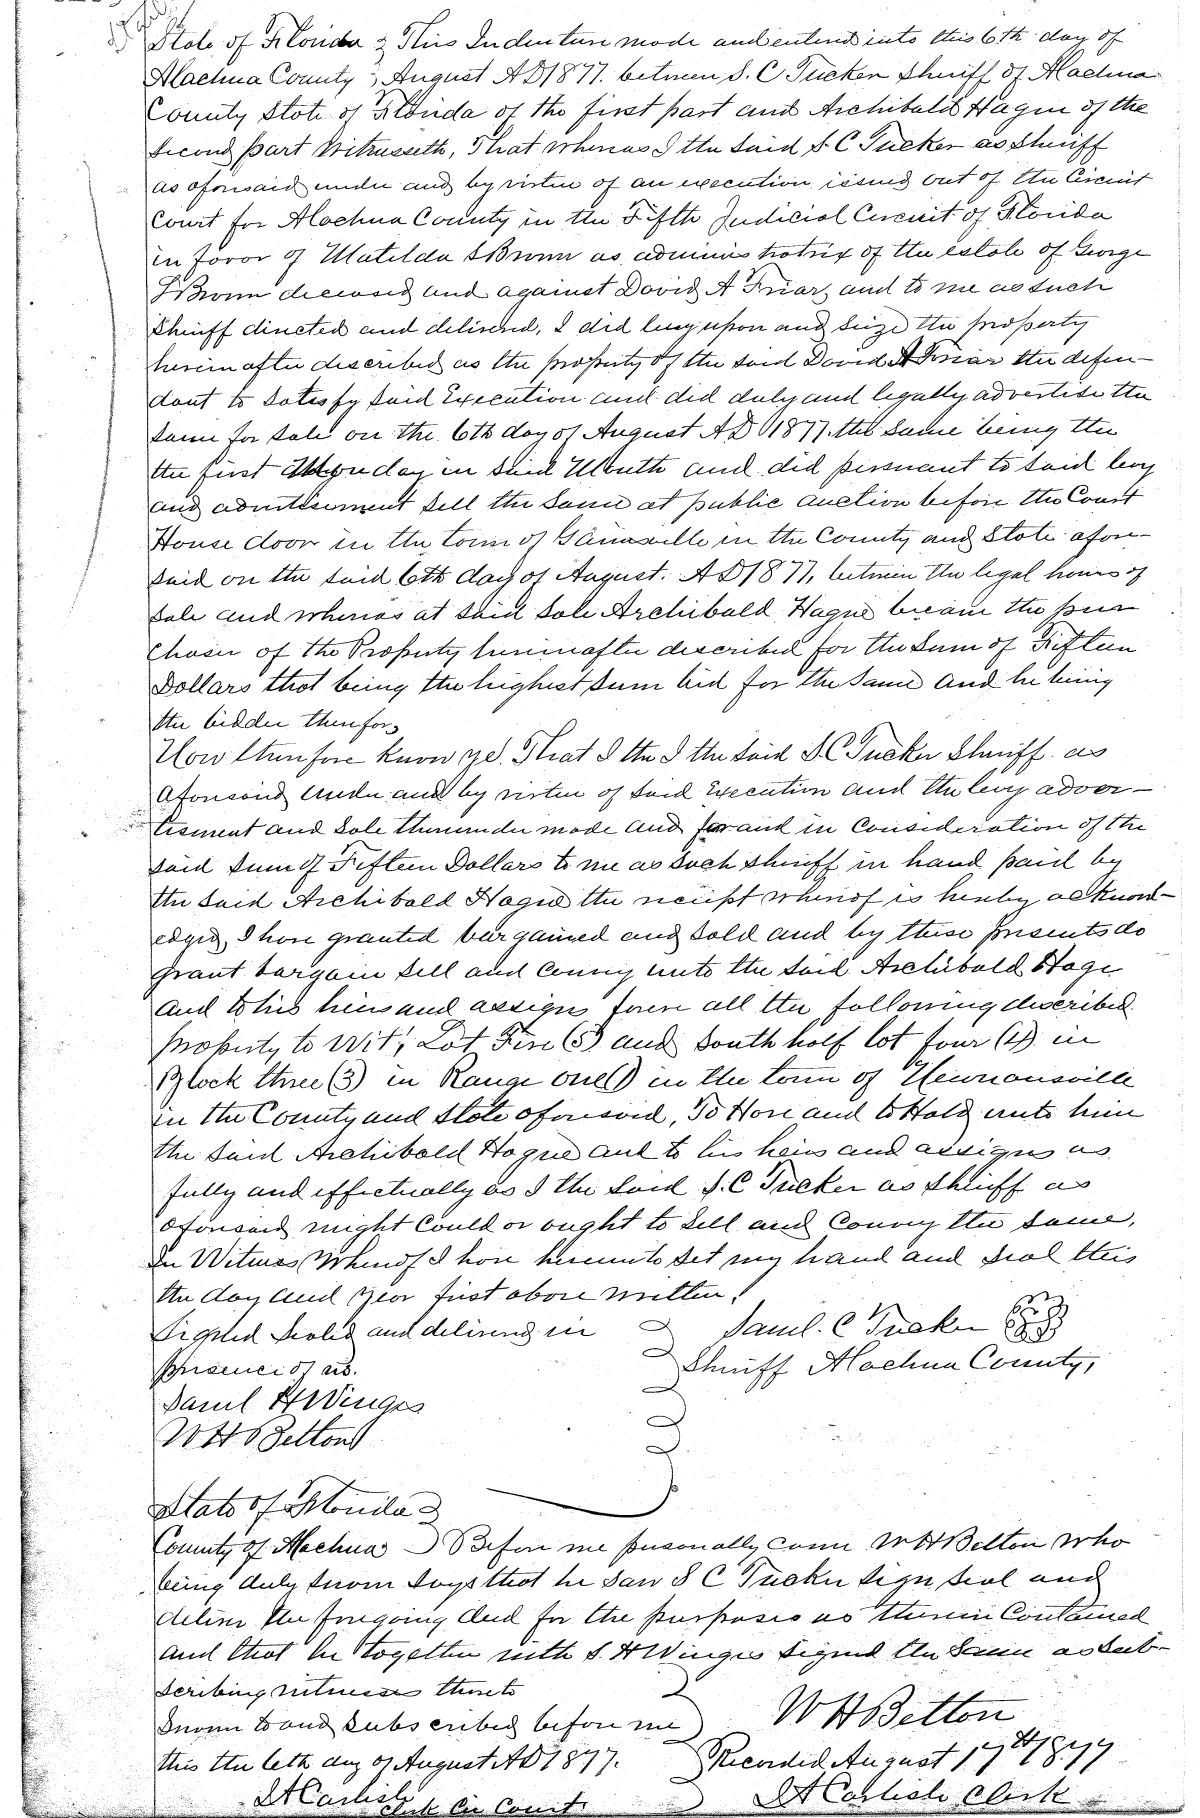 State of Florida } This Indenture made and entered into this 6th day of
Alachua County } August AD 1877. between S. C Tucker Sheriff of Alachua
County State of Florida of the first part and Archibald Hague of the
second part Witnesseth, That whereas I the said S. C Tucker as Sheriff
as aforesaid under and by virtue of an execution issued out of the Circuit
Court for Alachua County in the Fifth Judicial Circuit of Florida
in favor of Matilda Brown as administratrix of the estate of George
Brown deceased and against David A Friar, and to me as such
Sheriff directed and delivered, I did levy upon and seize the property
hereinafter described as the property of the said David A Friar the defen-
dant to satisfy said Execution and did duly and legally advertise the
same for sale on the 6th day of August AD 1877. the same being the
the first Monday in said Month and did persuant to said levy
and advertisement sell the same at public auction before the Court
House door in the town of Gainesville in the County and State afore-
said on the said 6th day of August. AD 1877, between the legal hours of
sale and whereas at said sale Archibald Hague became the pur
chaser of the Property hereinafter described for the sum of Fifteen
Dollars that being the highest sum bid for the same and he being
the bidder therefor,
Now therefore know ye. That I the I the said S. C Tucker Sheriff as
aforesaid Under and by virtue of said Execution and the levy adver-
tisment and sale thereunder made and for and in consideration of the
said sum of Fifteen Dollars to me as such sheriff in hand paid by
the said Archibald Hague the receipt whereof is hereby acknowl-
edged, I have granted bargained and sold and by these presents do
grant bargain sell and convey unto the said Archibald Hage
and to his heirs and assigns forever all the following described
property to wit; Lot Five (5) and South half lot four (4) in
Block three (3) in Range one (1) in the town of Newnansville
in the County and State aforesaid, To Have and to Hold unto him
the said Archibald Hague and to his heirs and assigns as
fully and effectually as I the said S. C Tucker as Sheriff as
aforesaid might could or ought to sell and convey the same,
In Witness Whereof I have hereunto set my hand and seal this
the day and year first above written.
Signed sealed and delivered in } Saml. C Tucker
presence of us. } Sheriff Alachua County,
Saml H Winges
W H Belton
State of Florida }
County of Alachua } Before me personally came W H Belton who
being duly sworn says that he saw S C Tucker sign seal and
deliver the foregoing deed for the purposes as therein Contained
and that he together with S. H Winges signed the same as sub-
scribing witnesses thereto
Sworn to and subscribed before me } W H Belton
this the 6th day of August AD 1877. } Recorded August 17th 1877
Clerk Cir Court } Clerk